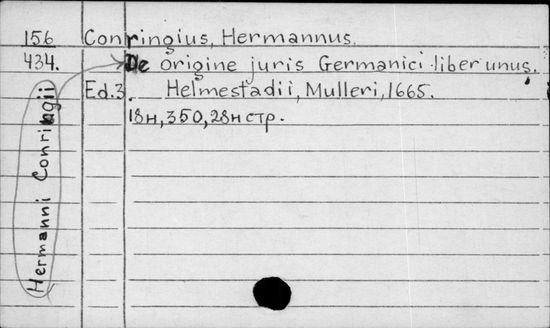 156 Conringius, Hermannus.
434. De origine juris Germanici liber unus.
Ed.3. Helmestadii, Mulleri, 1665.
18н, 350, 28н стр.
Hermanni Conringii